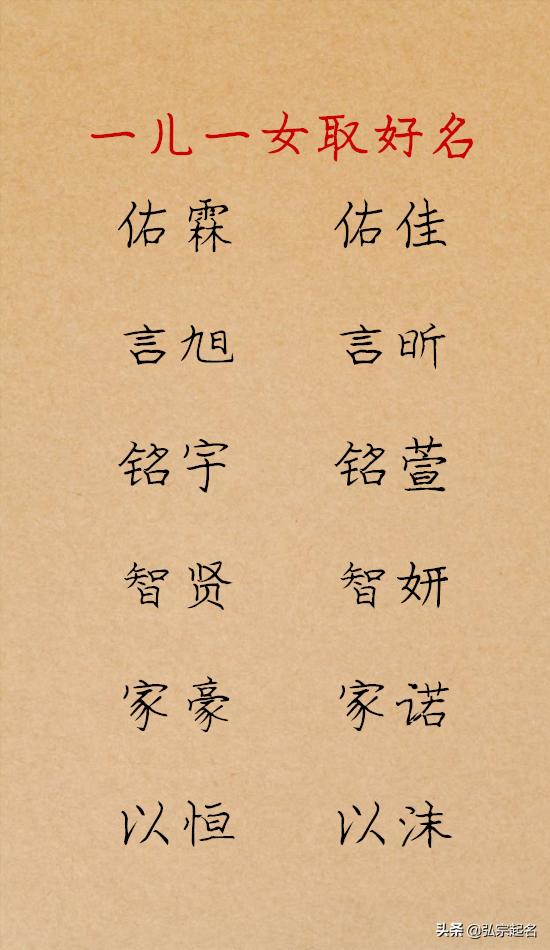 一儿一女取好名
佑霖 佑佳
言旭 言昕
铭宇 铭萱
智贤 智妍
家豪 家诺
以恒 以沫
头条 @弘宗起名